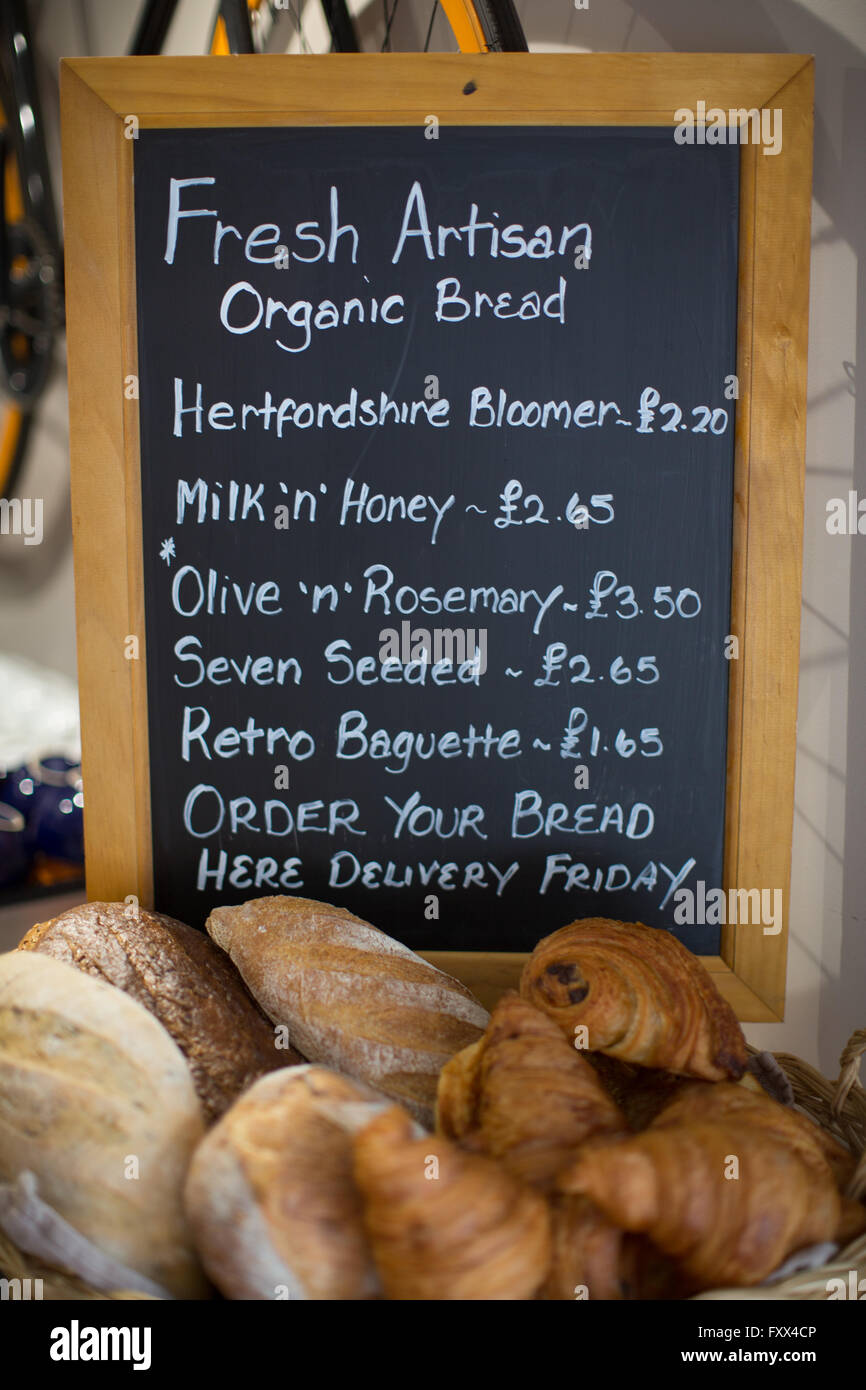 Fresh Artisan
Organic Bread
Hertfordshire Bloomer ~ £2.20
Milk 'n' Honey ~ £2.65
*
Olive 'n' Rosemary ~ £3.50
Seven Seeded ~ £2.65
Retro Baguette ~ £1.65
ORDER YOUR BREAD
HERE DELIVERY FRIDAY
alamy
Image ID: FXX4CP
www.alamy.com